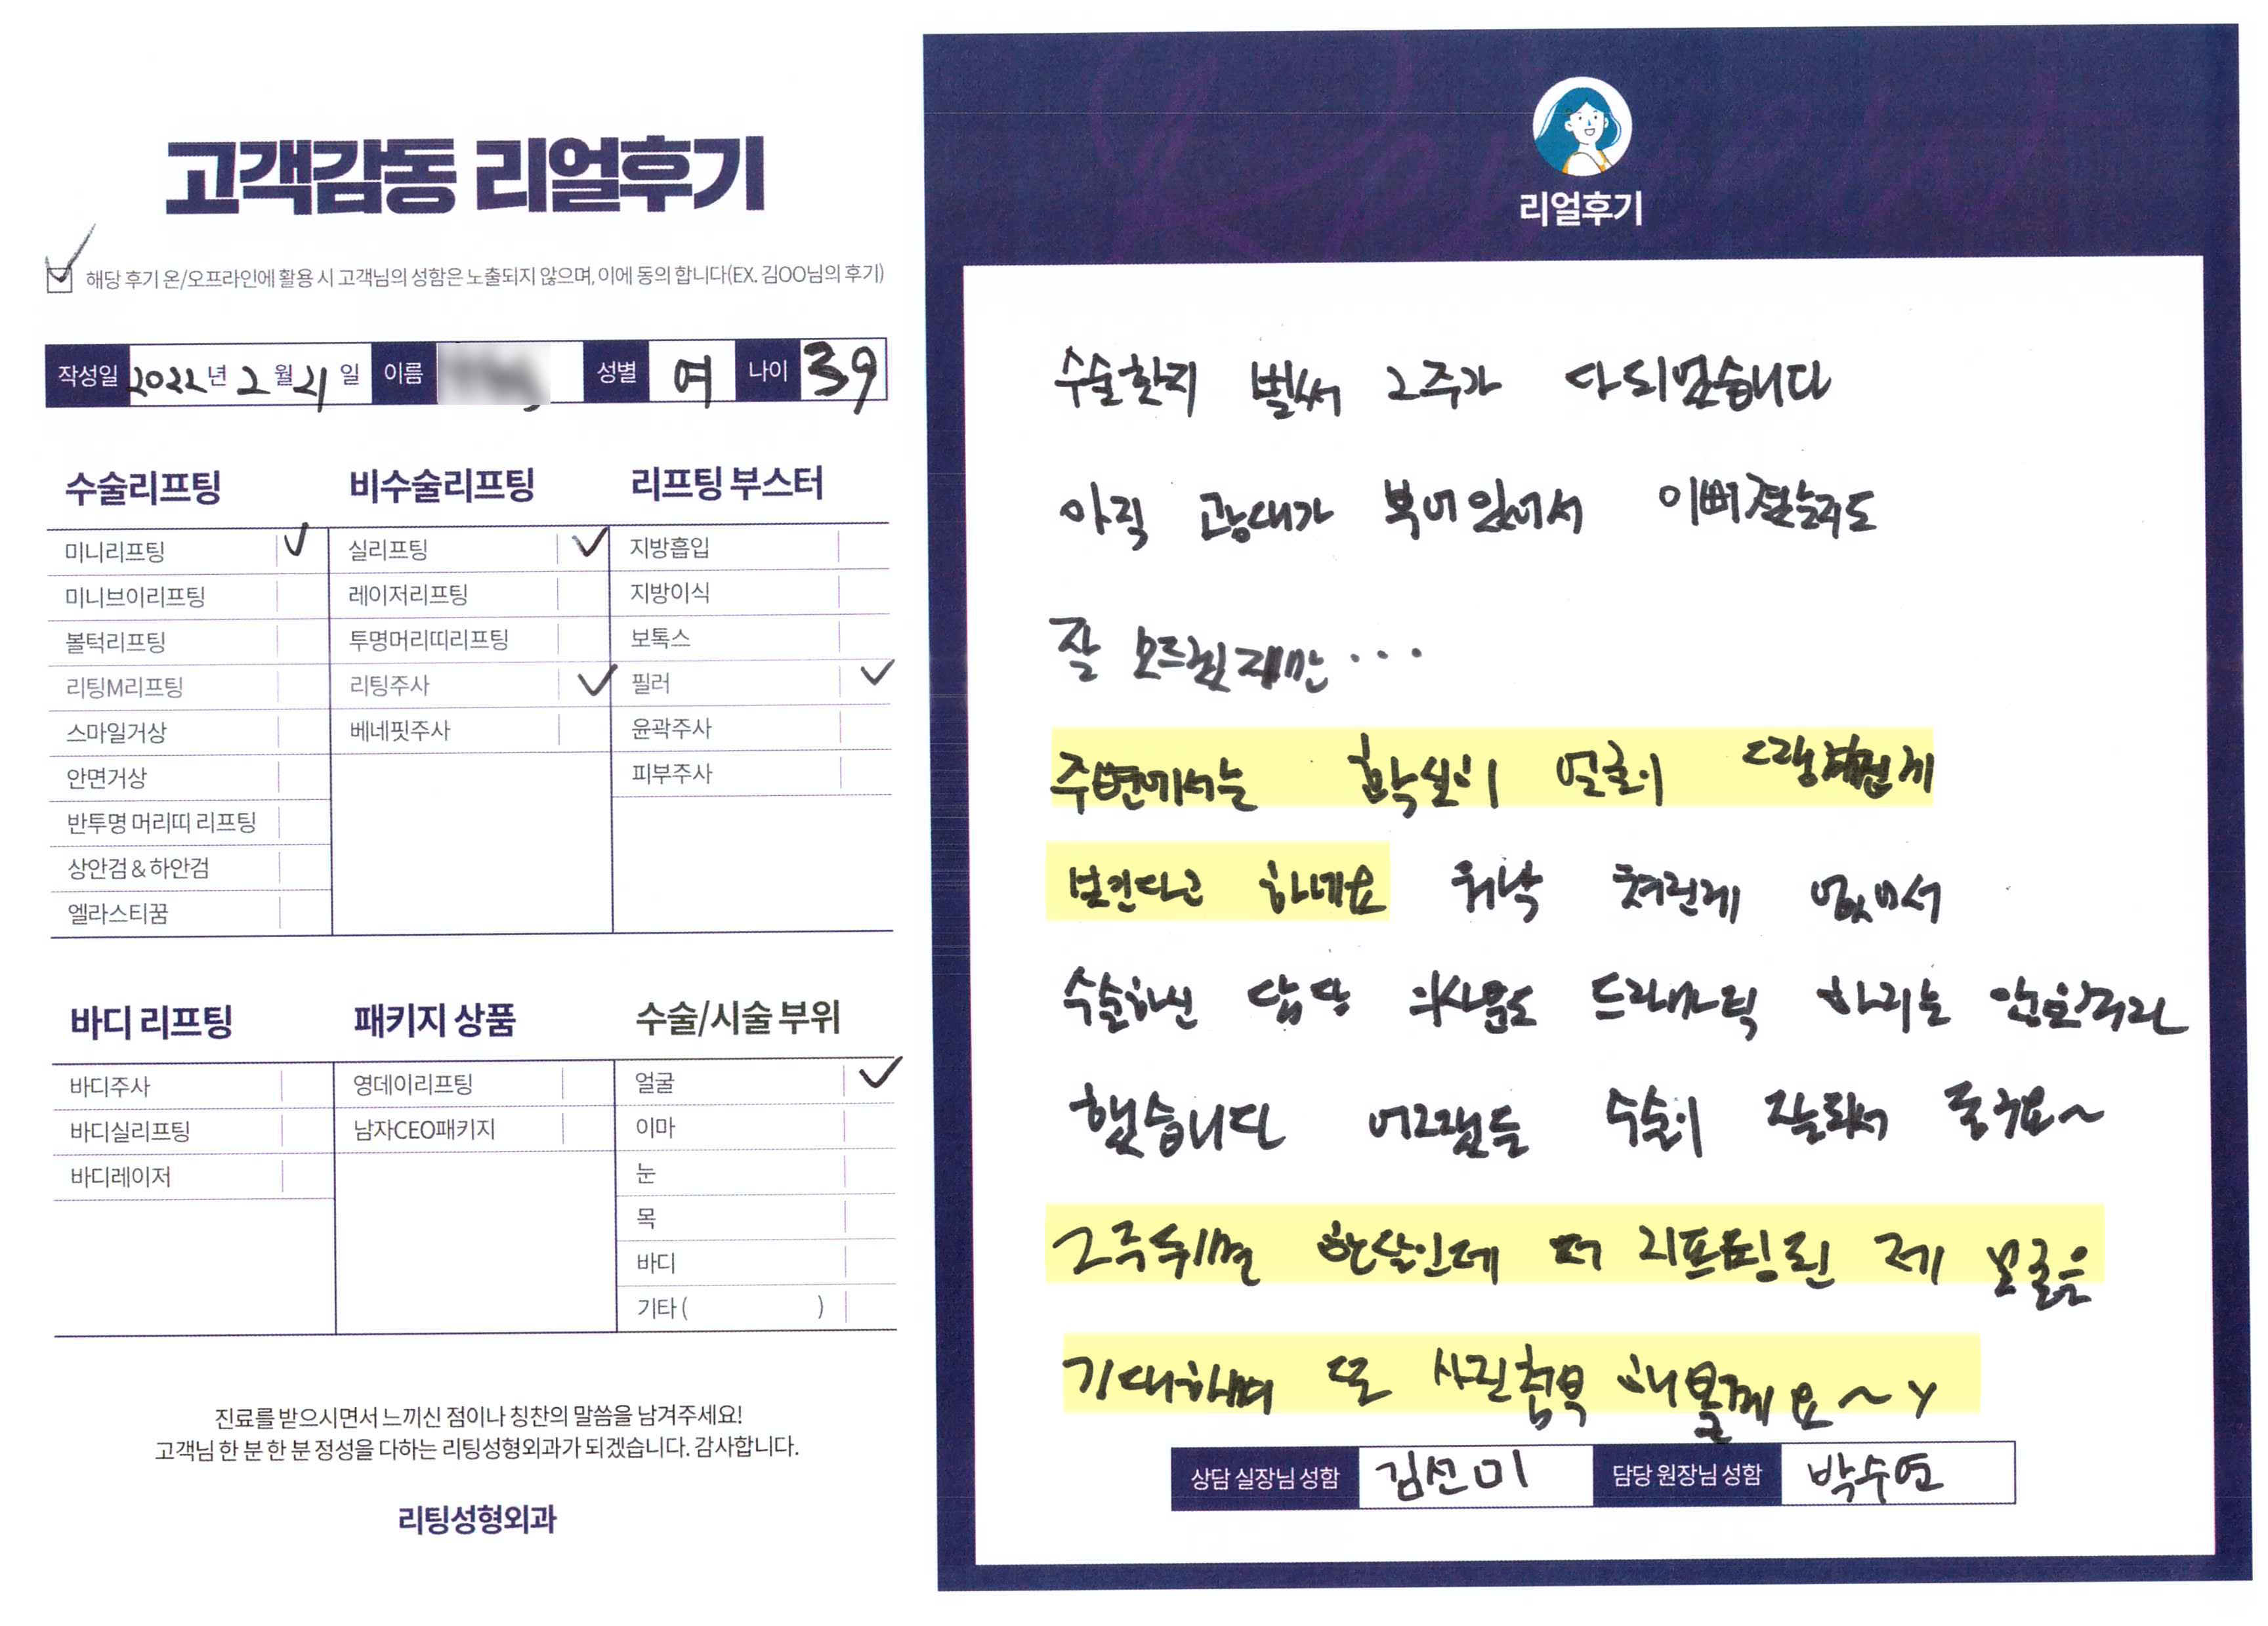 고객감동 리얼후기
해당 후기 온/오프라인에 활용 시 고객님의 성함은 노출되지 않으며, 이에 동의 합니다(EX. 김OO님의 후기)
작성일 2022년 2월 21일 이름 성별 여 나이 39
수술리프팅
미니리프팅
미니브이리프팅
볼턱리프팅
리팅M리프팅
스마일거상
안면거상
반투명 머리띠 리프팅
상안검 & 하안검
엘라스티꿈
비수술리프팅
실리프팅
레이저리프팅
투명머리띠리프팅
리팅주사
베네핏주사
리프팅 부스터
지방흡입
지방이식
보톡스
필러
윤곽주사
피부주사
바디 리프팅
바디주사
바디실리프팅
바디레이저
패키지 상품
영데이리프팅
남자CEO패키지
수술/시술 부위
얼굴
이마
눈
목
바디
기타 ( )
진료를 받으시면서 느끼신 점이나 칭찬의 말씀을 남겨주세요!
고객님 한 분 한 분 정성을 다하는 리팅성형외과가 되겠습니다. 감사합니다.
리팅성형외과
리얼후기
수술한지 벌써 2주가 다되었습니다
아직 광대가 부어있어서 이뻐졌는지도
잘 모르겠지만...
주변에서는 확실히 얼굴이
보인다고 하네요 워낙 쳐진게 없어서
수술하신 담당 드라마틱 하지는
했습니다 어그랬든 수술이 잘되서 좋구요~
2주뒤면 한달인데 더 리프팅된 제 얼굴을
기대하며 또 사진첨부 해볼께요~
상담 실장님 성함 김선미 담당 원장님 성함 박수연